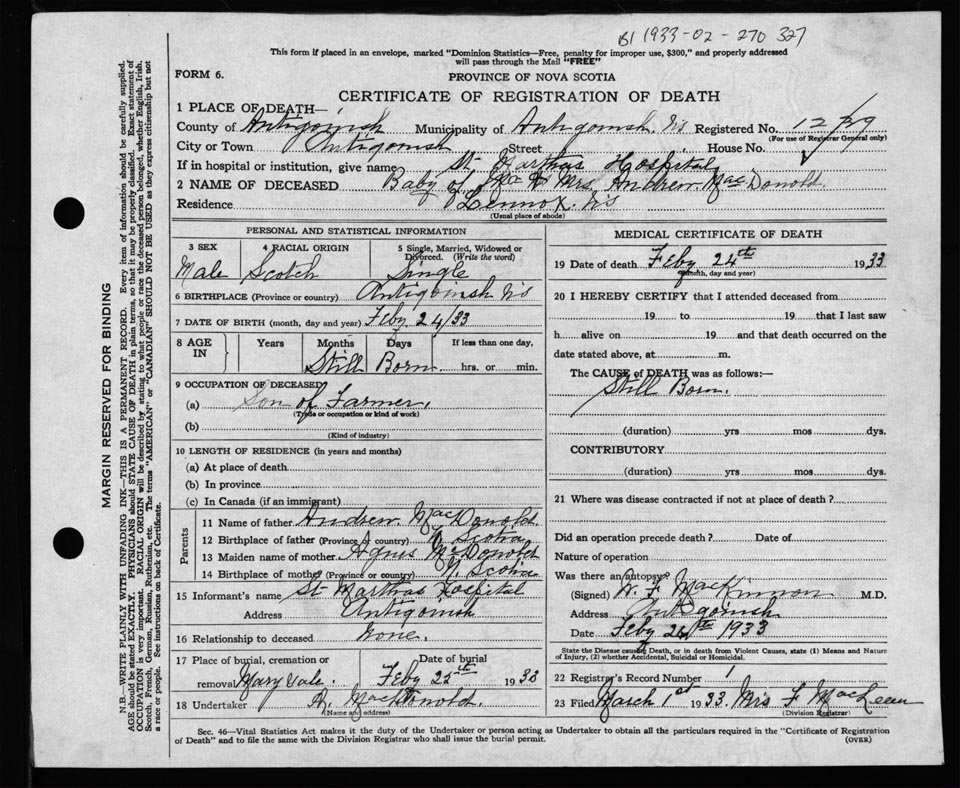 B1 1933-02-270 327
This form if placed in an envelope, marked "Dominion Statistics—Free, penalty for improper use, $300," and properly addressed
will pass through the Mail "FREE"
FORM 6.
PROVINCE OF NOVA SCOTIA
CERTIFICATE OF REGISTRATION OF DEATH
1 PLACE OF DEATH—
County of Antigoinsh Municipality of Antigonish. Ns Registered No. 1279
(For use of Registrar General only)
City or Town Antigonish Street House No.
If in hospital or institution, give name St Marthas Hospital
2 NAME OF DECEASED Baby of Mr & Mrs. Andrew MacDonold.
Residence Lennox. Ns
(Usual place of abode)
PERSONAL AND STATISTICAL INFORMATION
3 SEX 4 RACIAL ORIGIN 5 Single, Married, Widowed or
Divorced. (Write the word)
Male Scotch Single
6 BIRTHPLACE (Province or country) Antigoinsh Ns
7 DATE OF BIRTH (month, day and year) Feby 24/33
8 AGE IN Years Months Days If less than one day,
Still Born hrs. or min.
9 OCCUPATION OF DECEASED
(a) Son of Farmer.
(Trade or occupation or kind of work)
(b)
(Kind of industry)
10 LENGTH OF RESIDENCE (in years and months)
(a) At place of death
(b) In province
(c) In Canada (if an immigrant)
Parents
11 Name of father Andrew MacDonold.
12 Birthplace of father (Province or country) N. Scotia
13 Maiden name of mother Agnes McDonold
14 Birthplace of mother (Province or country) N. Scotia
15 Informant's name St Marthas Hospital
Address Antigonish
16 Relationship to deceased None.
17 Place of burial, cremation or Date of burial
removal Mary Vale. Feby 25th 1933
18 Undertaker A. MacDonold.
(Name and address)
MEDICAL CERTIFICATE OF DEATH
19 Date of death Feby 24th 1933
(Month, day and year)
20 I HEREBY CERTIFY that I attended deceased from
19 to 19 that I last saw
h alive on 19 and that death occurred on the
date stated above, at m.
The CAUSE of DEATH was as follows:—
Still Born.
(duration) yrs mos dys.
CONTRIBUTORY
(duration) yrs mos dys.
21 Where was disease contracted if not at place of death?
Did an operation precede death? Date of
Nature of operation
Was there an autopsy?
(Signed) W. F. MacKinnon M.D.
Address Antigonish
Date Feby 1933
State the Disease causing Death, or in death from Violent Causes, state (1) Means and Nature
of Injury, (2) whether Accidental, Suicidal or Homicidal.
22 Registrar's Record Number 1
23 Filed March 1st 1933. Mrs F. MacLean
(Division Registrar)
Sec. 46—Vital Statistics Act makes it the duty of the Undertaker or person acting as Undertaker to obtain all the particulars required in the "Certificate of Registration
of Death" and to file the same with the Division Registrar who shall issue the burial permit.
(OVER)
MARGIN RESERVED FOR BINDING
N.B.—WRITE PLAINLY WITH UNFADING INK—THIS IS A PERMANENT RECORD. Every item of information should be carefully supplied.
AGE should be stated EXACTLY. PHYSICIANS should STATE CAUSE OF DEATH in plain terms, so that it may be properly classified. Exact statement of
OCCUPATION is very important. RACIAL ORIGIN will be described by stating to what people or race the deceased person belonged, whether English, Irish,
Scotch, French, German, Russian, Ruthenian, etc. The terms "AMERICAN" or "CANADIAN" SHOULD NOT BE USED as they express citizenship but not
a race or people. See instructions on back of Certificate.